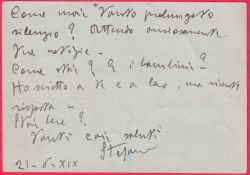 Come mai tanto prolungato
silenzio? Attendo ansiosamente
tue notizie -
Come stai? E i bambini?
Ho scritto a te e a Lao, ma niente
risposta -
Stai bene?
Tanti cari saluti
Stefano
21-6-XIX